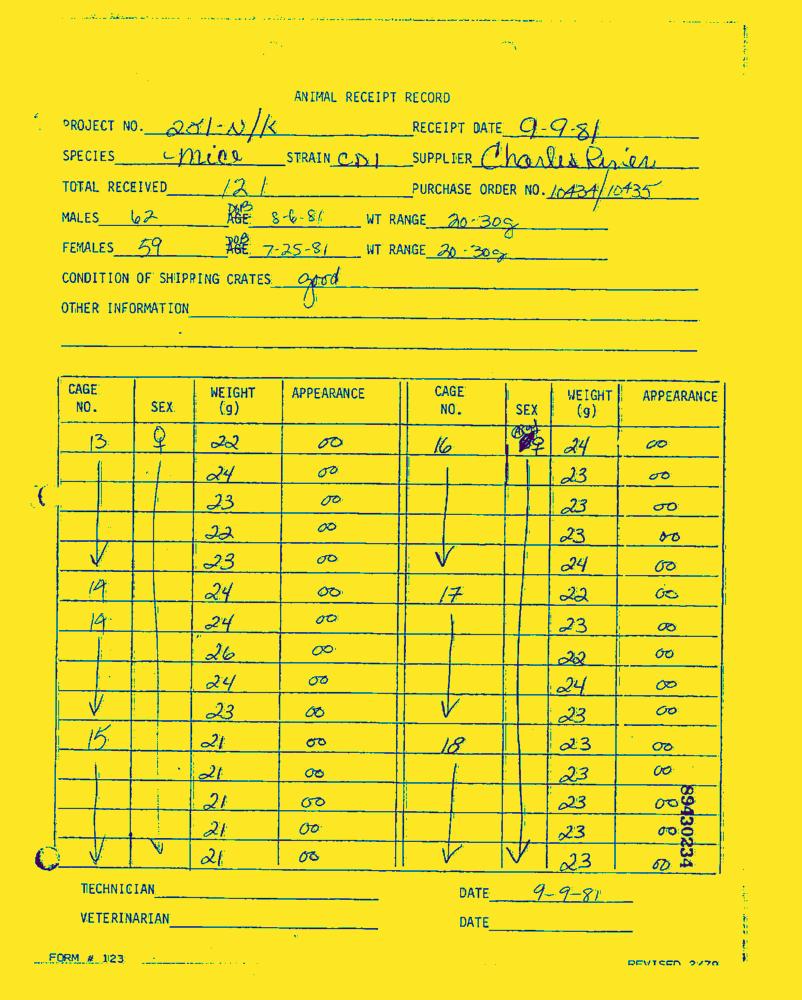 ANIMAL RECEIPT RECORD
PROJECT NO. 201-N/K RECEIPT DATE 9-9-81
SPECIES mice STRAIN CD1 SUPPLIER Charles River
TOTAL RECEIVED 121 PURCHASE ORDER NO. 10434/10435
MALES 62 DOB AGE 8-6-81 WT RANGE 20-30g
FEMALES 59 DOB AGE 7-25-81 WT RANGE 20-30g
CONDITION OF SHIPPING CRATES good
OTHER INFORMATION
CAGE NO. SEX WEIGHT (g) APPEARANCE CAGE NO. SEX WEIGHT (g) APPEARANCE
13 ♀ 22 00 16 ♀ 24 00
24 00 23 00
23 00 23 00
22 00 23 00
23 00 24 00
14 24 00 17 22 00
14 24 00 23 00
26 00 22 00
24 00 24 00
23 00 23 00
15 21 00 18 23 00
21 00 23 00
21 00 23 00
21 00 23 00
21 00 23 00
89430234
TECHNICIAN DATE 9-9-81
VETERINARIAN DATE
FORM # 123 REVISED 2/79